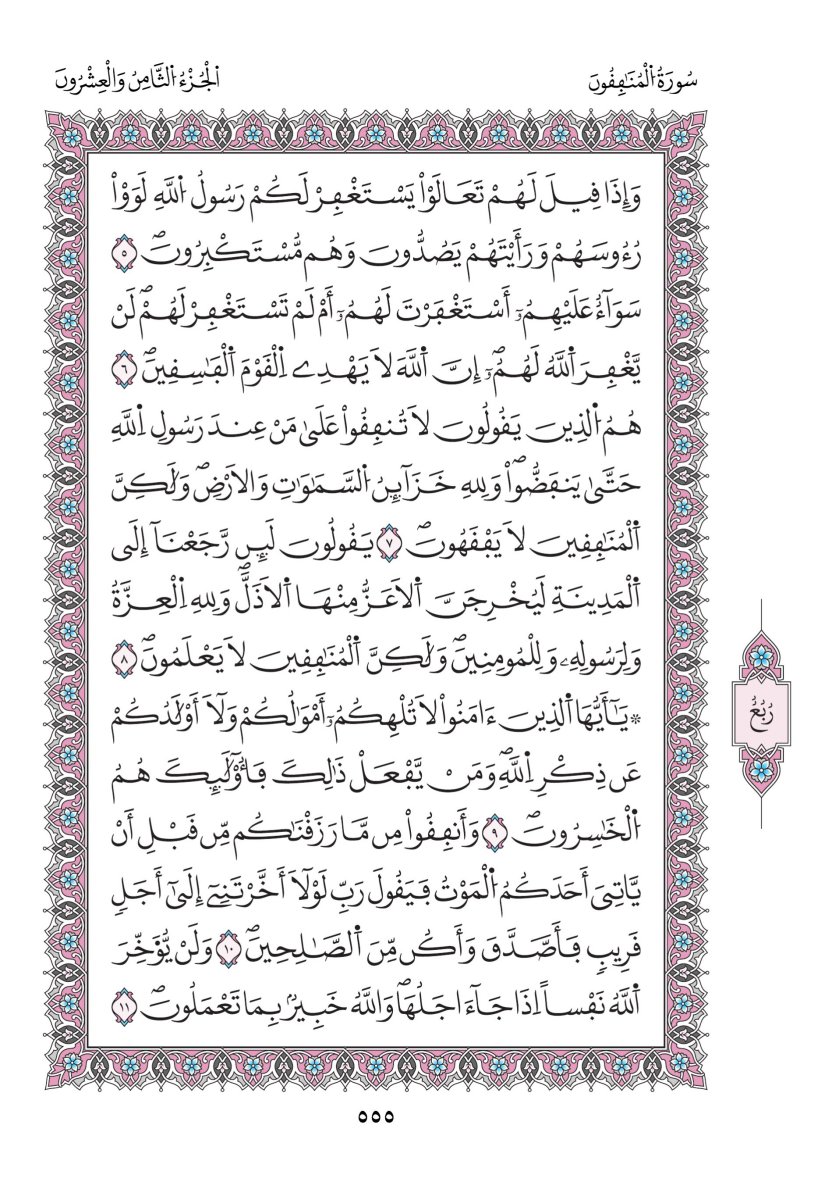 سُورَةُ اُ۬لْمُنَٰفِقُونَ
اَ۬لْجُزْءُ اُ۬لثَّامِنُ وَالْعِشْرُونَ
وَإِذَا قِيلَ لَهُمْ تَعَالَوْاْ يَسْتَغْفِرْ لَكُمْ رَسُولُ اُ۬للَّهِ لَوَوْاْ
رُءُوسَهُمْ وَرَأَيْتَهُمْ يَصُدُّونَ وَهُم مُّسْتَكْبِرُونَۖ ٥
سَوَآءٌ عَلَيْهِمُۥٓ أَسْتَغْفَرْتَ لَهُمُۥٓ أَمْ لَمْ تَسْتَغْفِرْ لَهُمْۖ لَنْ
يَّغْفِرَ اَ۬للَّهُ لَهُمُۥٓۖ إِنَّ اَ۬للَّهَ لَا يَهْدِے اِ۬لْقَوْمَ اَ۬لْفَٰسِقِينَۖ ٦
هُمُ اُ۬لذِينَ يَقُولُونَ لَا تُنفِقُواْ عَلَىٰ مَنْ عِندَ رَسُولِ اِ۬للَّهِ
حَتَّىٰ يَنفَضُّواْۖ وَلِلهِ خَزَآئِنُ اُ۬لسَّمَٰوَٰتِ وَالَارْضِۖ وَلَٰكِنَّ
اَ۬لْمُنَٰفِقِينَ لَا يَفْقَهُونَۖ ٧ يَقُولُونَ لَئِن رَّجَعْنَآ إِلَى
اَ۬لْمَدِينَةِ لَيُخْرِجَنَّ اَ۬لَاعَزُّ مِنْهَا اَ۬لَاذَلَّۖ وَلِلهِ اِ۬لْعِزَّةُ
وَلِرَسُولِهِۦ وَلِلْمُومِنِينَۖ وَلَٰكِنَّ اَ۬لْمُنَٰفِقِينَ لَا يَعْلَمُونَۖ ٨
۞يَٰٓأَيُّهَا اَ۬لذِينَ ءَامَنُواْ لَا تُلْهِكُمُۥٓ أَمْوَٰلُكُمْ وَلَآ أَوْلَٰدُكُمْ
عَن ذِكْرِ اِ۬للَّهِۖ وَمَنْ يَّفْعَلْ ذَٰلِكَ فَأُوْلَٰٓئِكَ هُمُ
اُ۬لْخَٰسِرُونَۖ ٩ وَأَنفِقُواْ مِن مَّا رَزَقْنَٰكُم مِّن قَبْلِ أَنْ
يَّاتِيَ أَحَدَكُمُ اُ۬لْمَوْتُ فَيَقُولَ رَبِّ لَوْلَآ أَخَّرْتَنِےٓ إِلَىٰٓ أَجَلٖ
قَرِيبٖ فَأَصَّدَّقَ وَأَكُن مِّنَ اَ۬لصَّٰلِحِينَۖ ١٠ وَلَنْ يُّؤَخِّرَ
اَ۬للَّهُ نَفْساً اِذَا جَآءَ اجَلُهَاۖ وَاللَّهُ خَبِيرُۢ بِمَا تَعْمَلُونَۖ ١١
رُبُعُ
٥٥٥